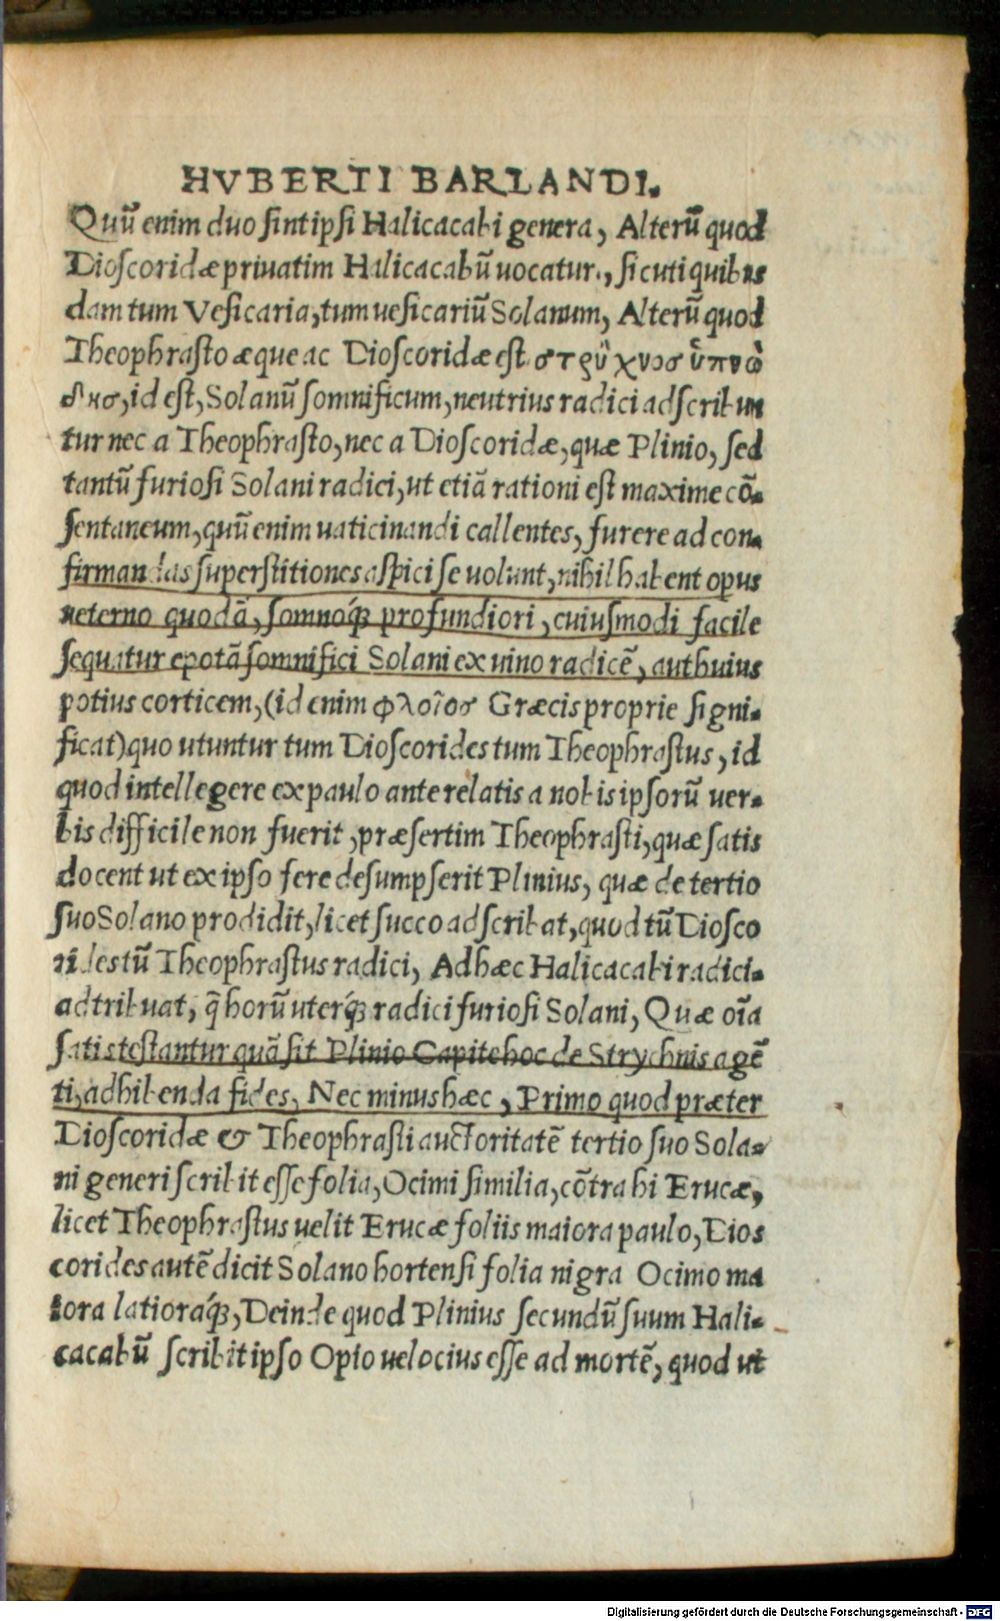 HVBERTI BARLANDI.
Quũ enim duo ſint ipſi Halicacabi genera, Alterũ quod
Dioſcoridæ priuatim Halicacabũ uocatur., ſicuti quibus
dam tum Veſicaria, tum ueſicariũ Solanum, Alterũ quod
Theophraſto æque ac Dioſcoridæ eſt στρύχνοσ ὑπνώ
δησ, id eſt, Solanũ ſomnificum, neutrius radici adſcribun
tur nec a Theophraſto, nec a Dioſcoridæ, quæ Plinio, ſed
tantũ furioſi Solani radici, ut etiã rationi eſt maxime cõ-
ſentaneum, quũ enim uaticinandi callentes, furere ad con-
firmandas ſuperſtitiones aſpici ſe uolunt, nihil habent opus
ueterno quodã, ſomnoq́; profundiori, cuiuſmodi facile
ſequatur epotã ſomnifici Solani ex uino radicẽ, aut huius
potius corticem, (id enim φλοῖοσ Græcis proprie ſigni-
ficat) quo utuntur tum Dioſcorides tum Theophraſtus, id
quod intellegere ex paulo ante relatis a nobis ipſorũ uer-
bis difficile non fuerit, præſertim Theophraſti, quæ ſatis
docent ut ex ipſo fere deſumpſerit Plinius, quæ de tertio
ſuo Solano prodidit, licet ſucco adſcribat, quod tũ Dioſco
rides tũ Theophraſtus radici, Ad hæc Halicacabi radici-
adtribuat, q̃ horũ uterq́; radici furioſi Solani, Quæ oĩa
ſatis teſtantur quã ſit Plinio Capite hoc de Strychnis agẽ
ti, adhibenda fides, Nec minus hæc, Primo quod præter
Dioſcoridæ & Theophraſti auctoritatẽ tertio ſuo Sola-
ni generi ſcribit eſſe folia, Ocimi ſimilia, cõtra hi Erucæ,
licet Theophraſtus uelit Erucæ foliis maiora paulo, Dioſ
corides autẽ dicit Solano hortenſi folia nigra Ocimo ma
iora latioraq́;, Deinde quod Plinius ſecundũ ſuum Hali-
cacabũ ſcribit ipſo Opio uelocius eſſe ad mortẽ, quod ut
Digitalisierung gefördert durch die Deutsche Forschungsgemeinschaft - DFG